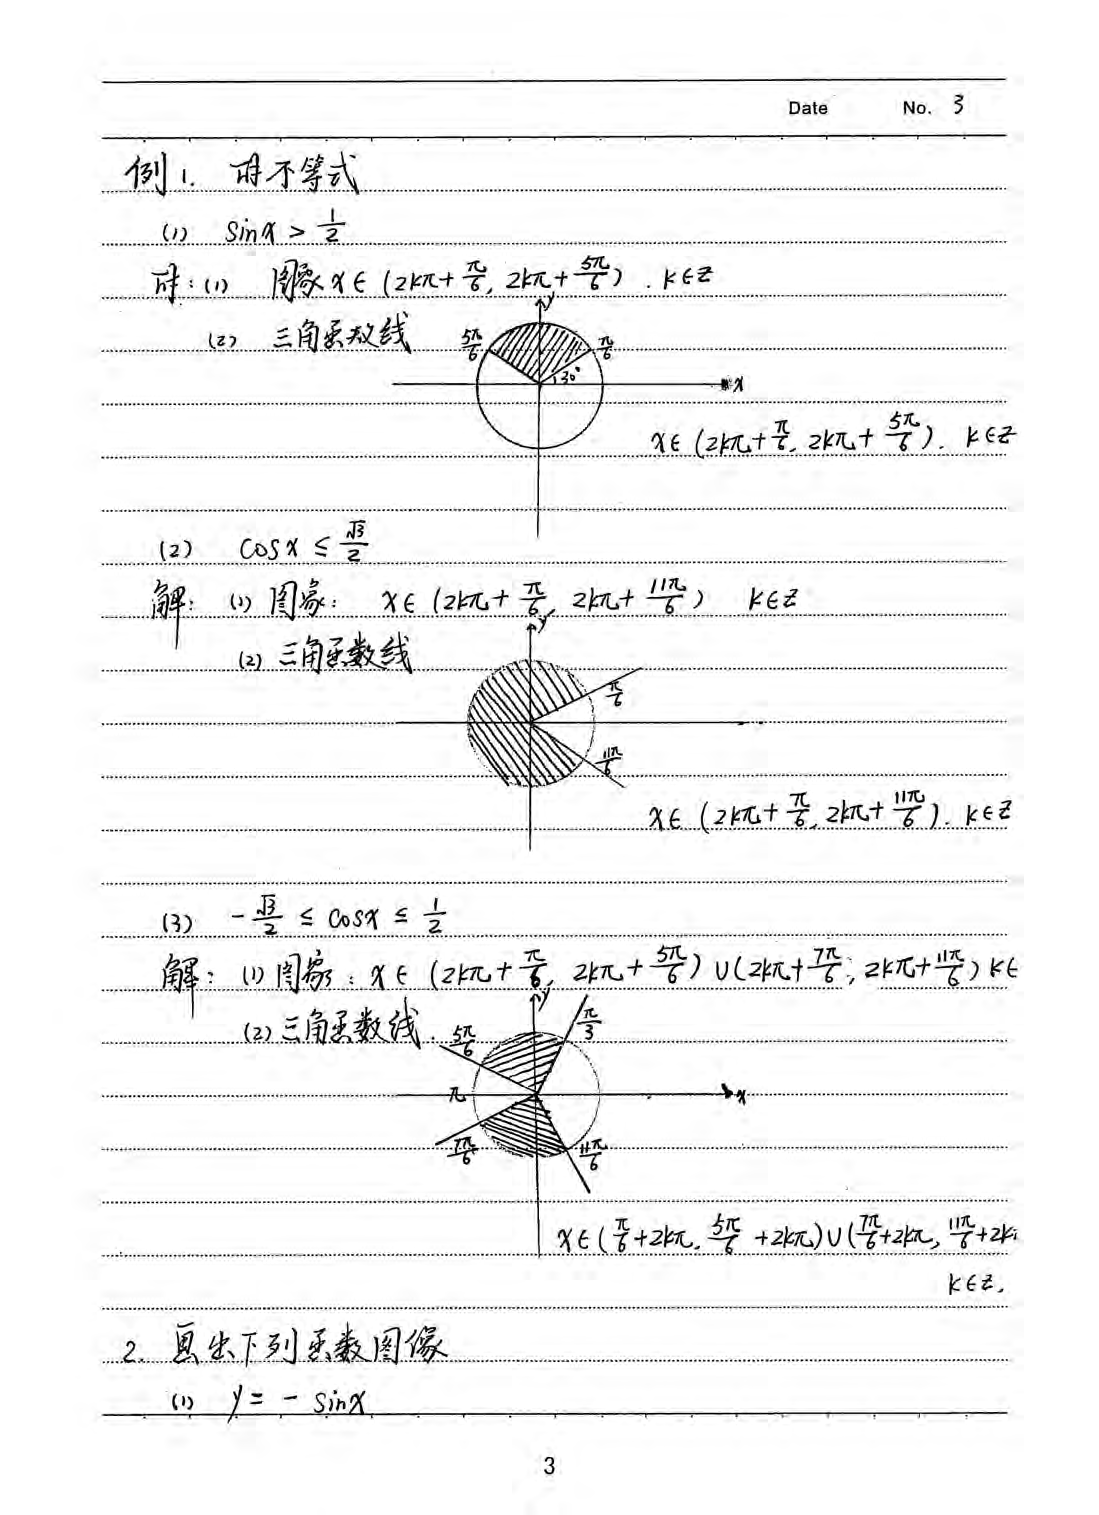 Date No. 3
例1. 解不等式
(1) sinx > 1/2
解: (1) 图象 x∈(2kπ+π/6, 2kπ+5π/6). k∈Z
(2) 三角函数线
y
5π/6 π/6
30° x
x∈(2kπ+π/6, 2kπ+5π/6). k∈Z
(2) cosx ≤ √3/2
解: (1) 图象: x∈(2kπ+π/6, 2kπ+11π/6) k∈Z
(2) 三角函数线
y
π/6
11π/6
x∈(2kπ+π/6, 2kπ+11π/6). k∈Z
(3) -√3/2 ≤ cosx ≤ 1/2
解: (1) 图象: x∈(2kπ+π/6, 2kπ+5π/6)∪(2kπ+7π/6, 2kπ+11π/6) k∈
(2) 三角函数线.
y
5π/6 π/3
π x
7π/6 11π/6
x∈(π/6+2kπ, 5π/6+2kπ)∪(7π/6+2kπ, 11π/6+2k
k∈Z.
2. 画出下列函数图像
(1) y = - sinx
3